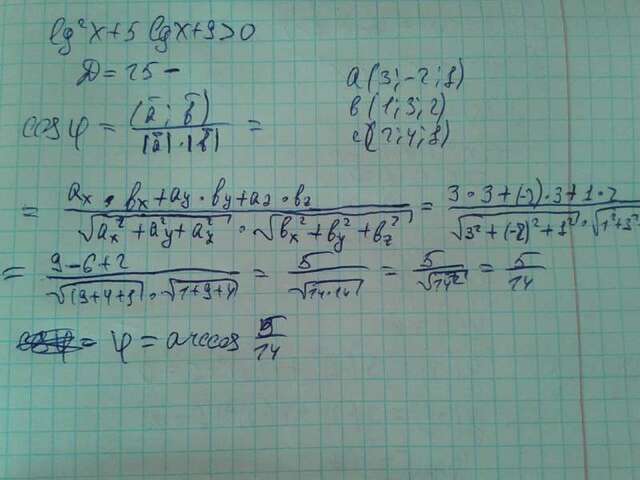 lg²x+5 lgx+9>0
D=25-
a(3;-2;1)
b(1;3;2)
c(2;4;1)
cos φ = (a̅; b̅) / |a̅|·|b̅| =
= ax · bx + ay · by + az · bz / √ax²+a²y+az² · √bx²+by²+bz² = 3·3+(-2)·3+1·2 / √3²+(-2)²+1² · √1²+3²
= 9-6+2 / √(9+4+1) · √1+9+4 = 5 / √14·14 = 5 / √14² = 5 / 14
= φ = arccos 5 / 14